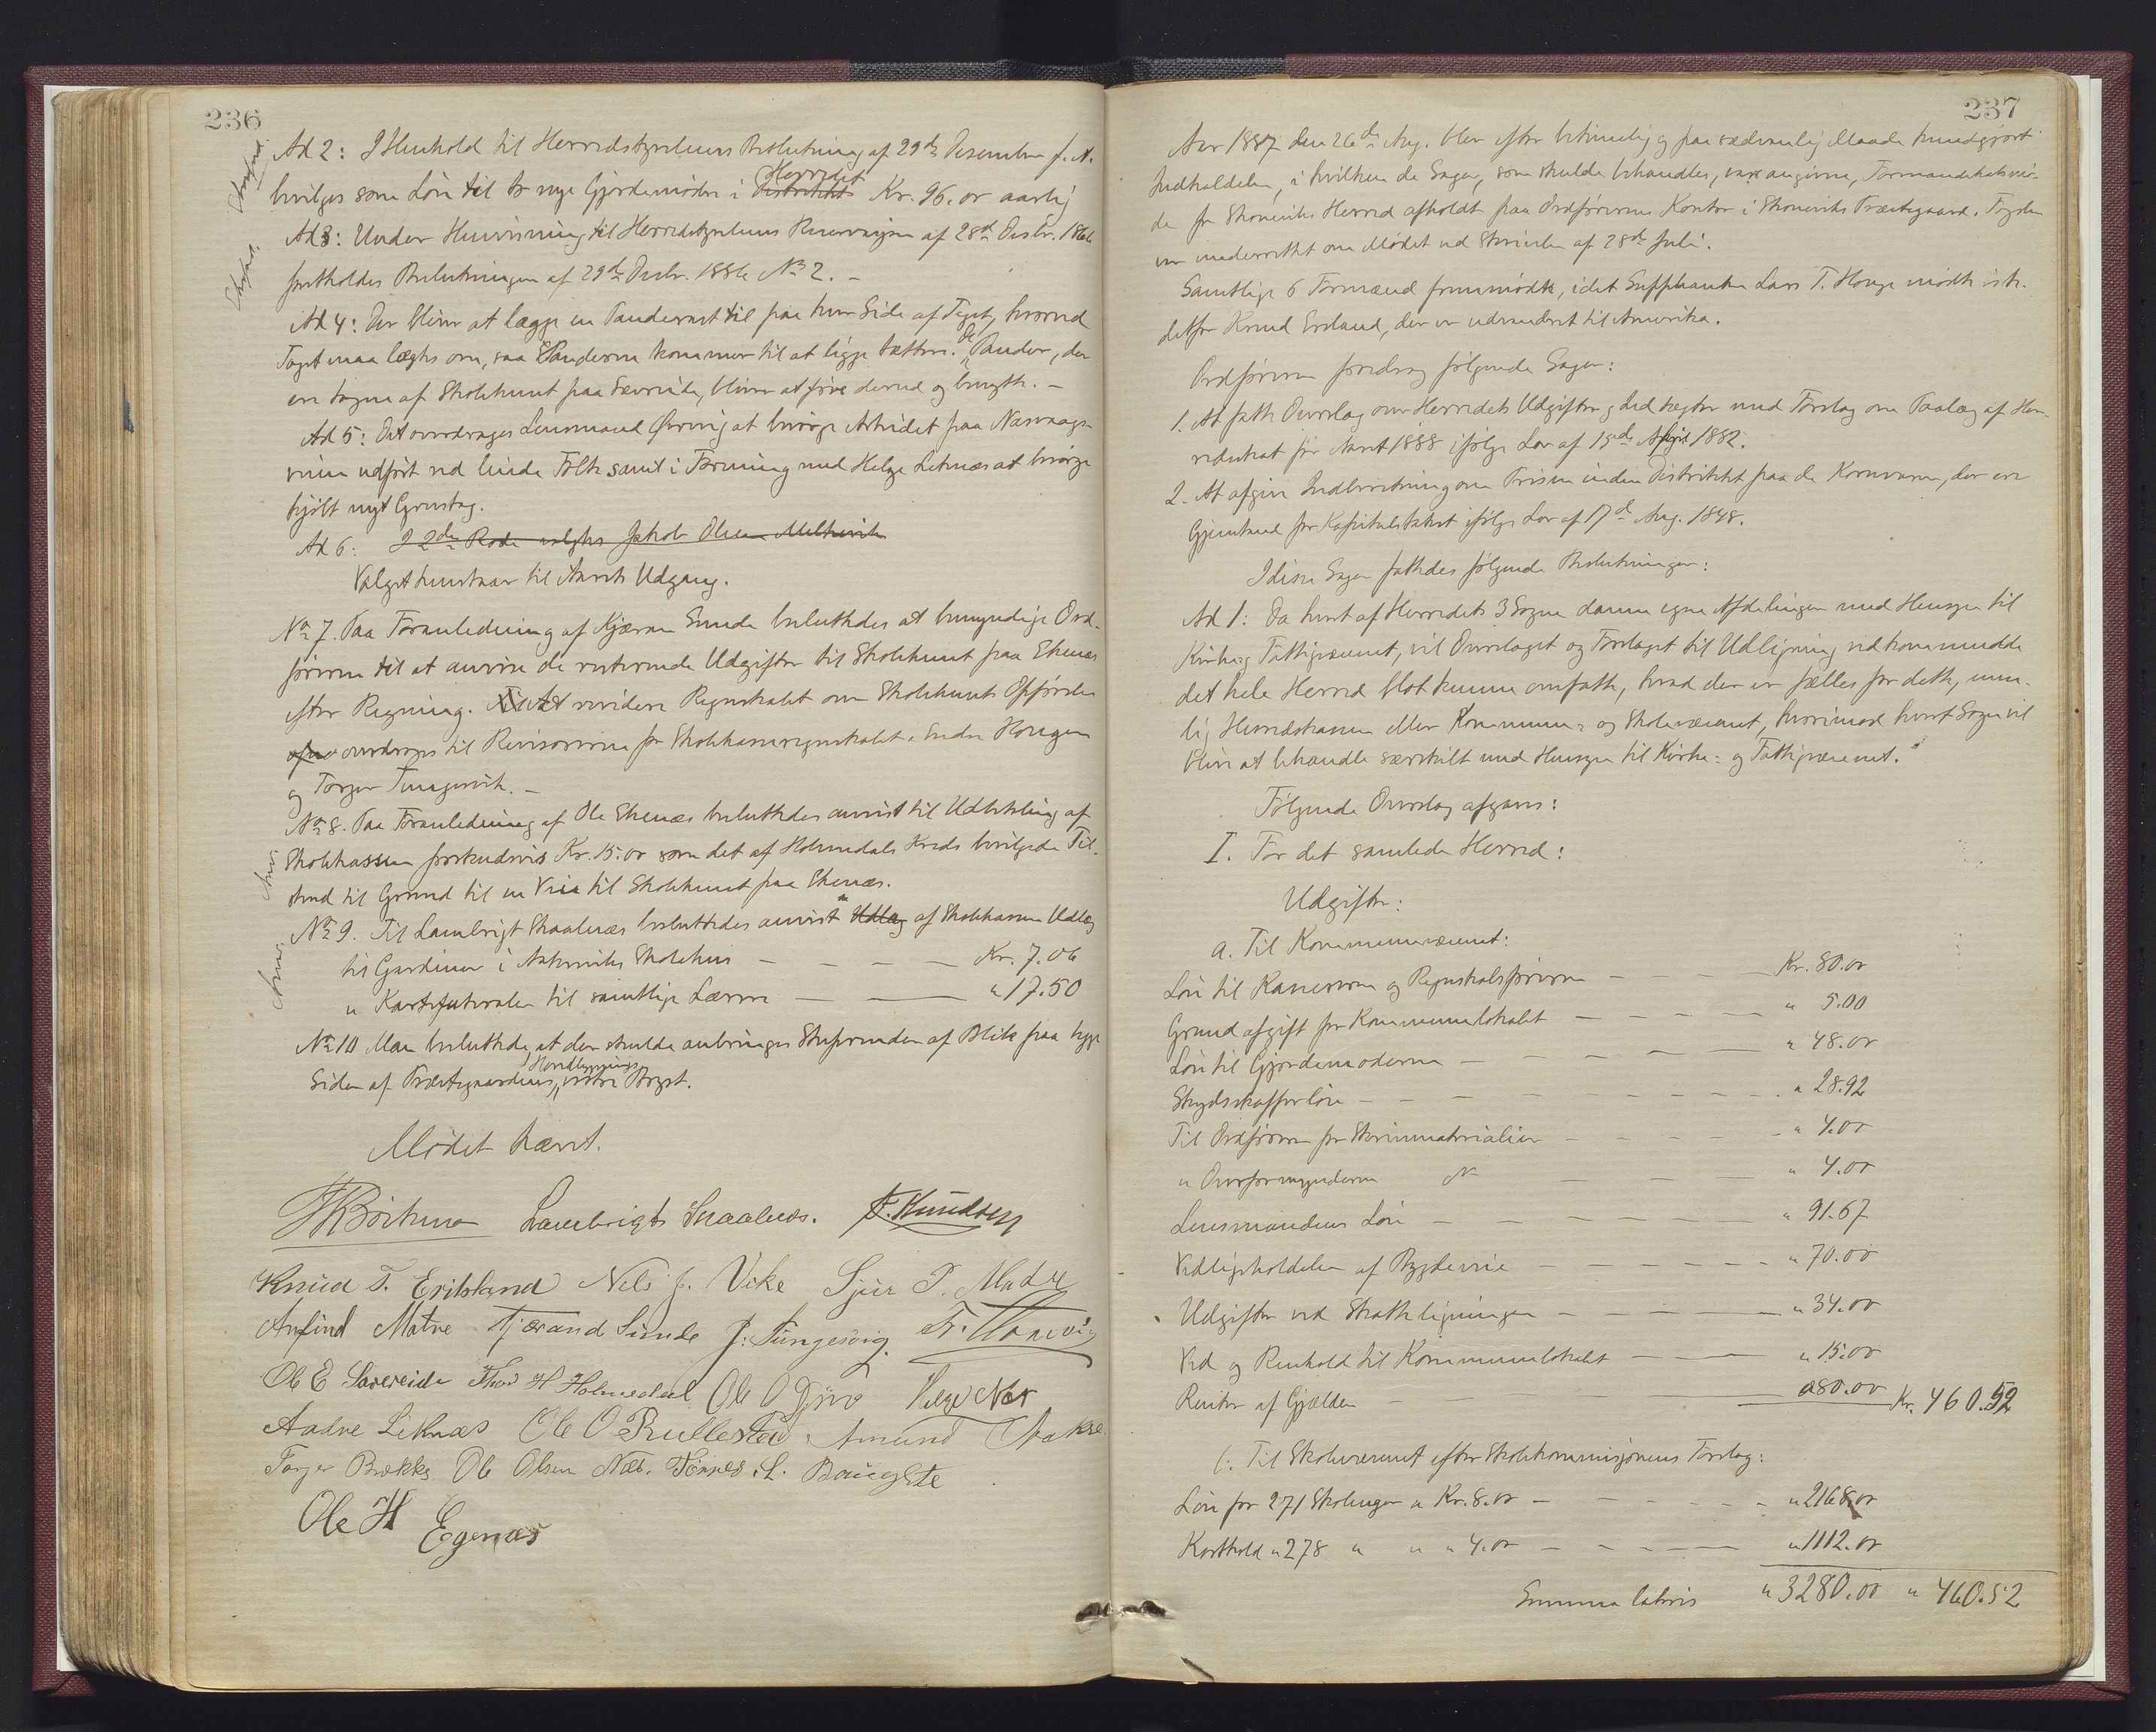 236
Ad 2: I Henhold til Herredstyrelsens Beslutning af 29de Desember f. A.
bevilges som Løn til to nye Gjordemødre i Herredet Distriktet Kr. 96.00 aarlig
Ad 3: Under Henvisning til Herredstyrelsens Reservasjon af 28de Desbr. 1866
fastholdes Beslutningen af 29de Desbr. 1886 No 2. –
Ad 4: Der bliver at lægge en Panderast til paa hver Side af Taget, hvorved
Taget maa lægges om, saa Panderne kommer til at ligge tættere. De Pander, der
ere tagne af Skolehuset paa Sævreide, bliver at føre derud og benytte. –
Ad 5: Det overdrages Lensmand Øvrevig at besørge Arbeidet paa Næsvaags-
veien udført ved leiede Folk samt i Forening med Helge Leknæs at besørge
kjøbt nyt Grustag.
Ad 6: I 2den Rode valgtes Jakob Olsen Milkevik
Valget henstaar til Aarets Udgang.
No 7. Paa Foranledning af Kjæran Sunde besluttedes at bemyndige Ord-
føreren til at anvise de resterende Udgifter til Skolehuset paa Ekenæs
efter Regning. At revidere Regnskabet over Skolehusets Opførelse
overdrages til Revisorerne for Skolekasseregnskabet: Endre Hougen
og Torger Tungesvik. –
No 8. Paa Foranledning af Ole Ekenæs besluttedes anvist til Udbetaling af
Skolekassen forskudsvis Kr. 15.00 som det af Holmedals Kreds bevilgede Til-
skud til Grund til en Vei til Skolehuset paa Ekenæs.
Anv.
No 9. Til Lambrigt Skaalnæs besluttedes anvist Udlæg af Skolekassen Udlæg
til Gardiner i Aakreviks Skolehus – – – – Kr. 7.06
" Kartfuteraler til samtlige Lærere – – " 17.50
Anv.
No 10 Man besluttede, at der skulde anbringes Stuprender af Blik paa begge
Sider af Præstegaardens Hovedbygnings østre Bygst.
Mødet hævet.
Lambrigt Skaalnæs. F. Knudsen
Knud T. Eritsland Nels J. Vike Sjur T. Matre
Anfind Matre Kjærand Sunde J. Tungesvig.
Ole E Sævereide Thor H Holmedal Ole O Djuv Helge Næs
Andve Leknæs Ole O Bullested Amund Aakre
Torger Brekke Ole Olsen Næs. Tønnes L. Bougste
Ole H Egenæs
237
Aar 1887 den 26de Aug. blev efter betimelig og paa sædvanlig Maade kundgjort
Indkaldelse, i hvilken de Sager, som skulde behandles, vare angivne, Formandskabsmø-
de for Skoneviks Herred afholdt paa Ordførerens Kontor i Skoneviks Præstegaard. Fogden
var underrettet om Mødet ved Skrivelse af 28de Juli.
Samtlige 6 Formænd fremmødte, idet Suppleanten Lars T. Houge mødte iste-
detfor Knud Ersland, der er udvandret til Amerika.
Ordføreren foredrog følgende Sager:
1. At fatte Overslag over Herredets Udgifter og Indtægter med Forslag om Paalæg af Her-
redsskat for Aaret 1888 ifølge Lov af 15de April 1882.
2. At afgive Indberetning om Prisen inden Distriktet paa de Kornvarer, der ere
Gjenstand for Kapitulstakst ifølge Lov af 17de Aug. 1848.
I disse Sager fattedes følgende Beslutninger:
Ad 1: Da hvert af Herredets 3 Sogne danne egne Afdelinger med Hensyn til
Kirke og Fattigvæsenet, vil Overslaget og Forslaget til Udligning vedkommende
det hele Herred blot kunne omfatte, hvad der er fælles for dette, nem-
lig Herredskassen eller Kommune- og Skolevæsenet, hvorimod hvert Sogn vil
blive at behandle særskilt med Hensyn til Kirke- og Fattigvæsenet.
Følgende Overslag afgaves:
I. For det samlede Herred:
Udgifter:
a. Til Kommunevæsenet:
Løn til Kassereren og Regnskabsføreren – – – – Kr. 80.00
Grundafgift for Kommunelokalet – – – – " 5.00
Løn til Gjordemoderen – – – – – " 48.00
Skydsskafferløn – – – – – – – " 28.92
Til Ordføreren for Skrivematerialier – – – – " 4.00
" Overformynderne – – – " 4.00
Lensmandens Løn – – – – – " 91.67
Vedligeholdelse af Bygdeveie – – – – – " 70.00
Udgifter ved Skatteligningen – – – – " 34.00
Ved og Renhold til Kommunelokalet – – " 15.00
Renter af Gjælden – – – " 80.00 Kr. 460.52
b. Til Skolevæsenet efter Skolekommisjonens Forslag:
Løn for 271 Skoleuger a Kr. 8.00 – – – – – " 2168.00
Kosthold " 278 " " " 4.00 – – – – " 1112.00
Summa lateris " 3280.00 " 460.52